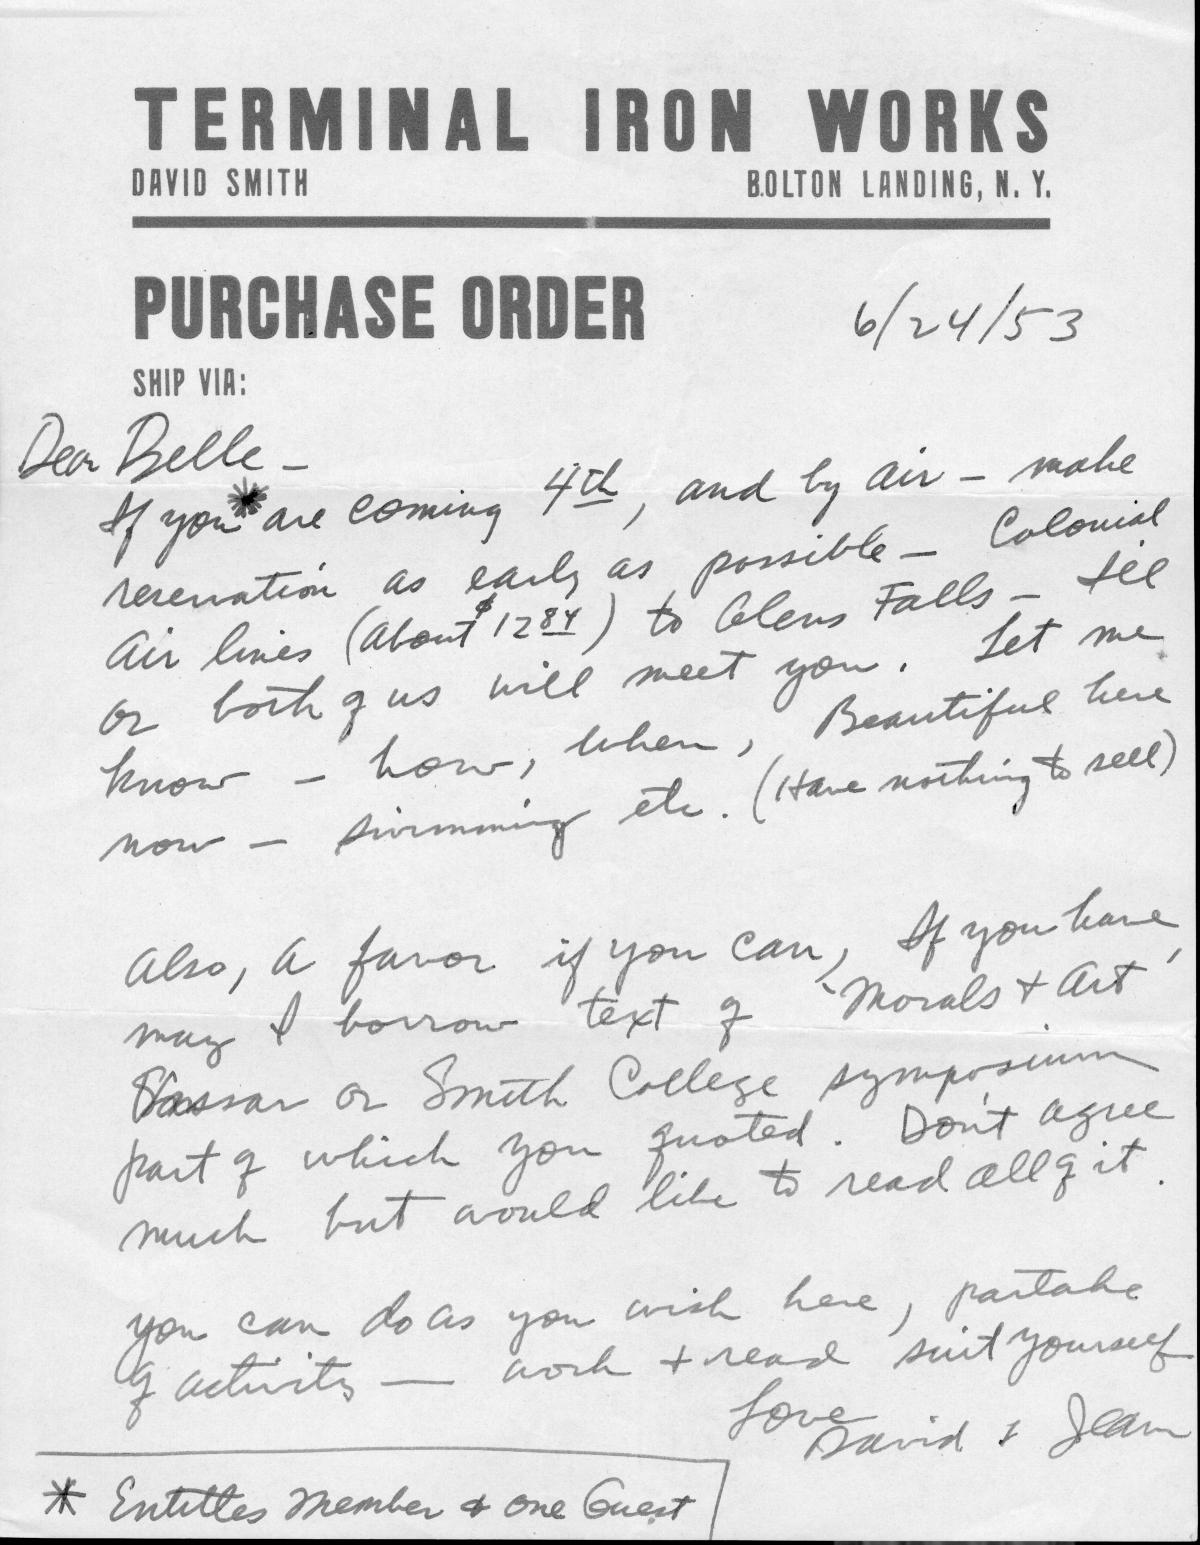 TERMINAL IRON WORKS
DAVID SMITH BOLTON LANDING, N. Y.
PURCHASE ORDER
6/24/53
SHIP VIA:
Dear Belle –
If you * are coming 4th, and by air – make
reservation as early as possible – Colonial
Air lines (about $12 84) to Glens Falls – I'll
or both of us will meet you. Let me
know – how, when, Beautiful here
now – swimming etc. (Have nothing to sell)
Also, a favor if you can, If you have
may I borrow text of 'Morals + Art'
Vassar or Smith College symposium
part of which you quoted. Don't agree
much but would like to read all of it.
you can do as you wish here, partake
of activity — work + read suit yourself
Love
David & Jean
* Entitles Member & one Guest